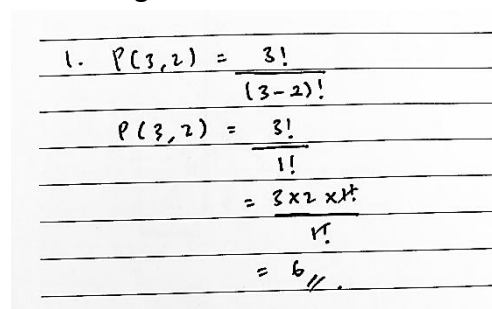 1. P(3,2) = 3!
(3-2)!
P(3,2) = 3!
1!
= 3x2 x1!
1!
= 6//.